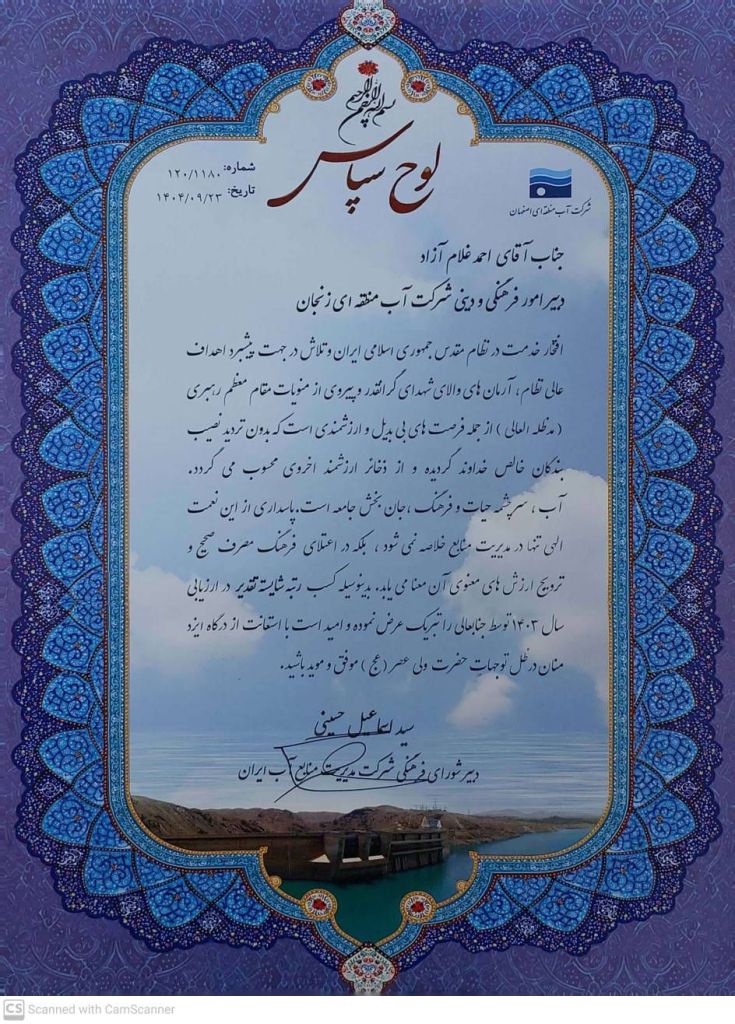 بسم الله الرحمن الرحیم
لوح سپاس
شماره: ۱۲۰/۱۱۸۰
تاریخ: ۱۴۰۴/۰۹/۲۳
شرکت آب منطقه ای اصفهان
جناب آقای احمد غلام آزاد
دبیر امور فرهنگی و دینی شرکت آب منطقه ای زنجان
افتخار خدمت در نظام مقدس جمهوری اسلامی ایران و تلاش در جهت پیشبرد اهداف
عالی نظام، آرمان های والای شهدای گرانقدر و پیروی از منویات مقام معظم رهبری
(مدظله العالی) از جمله فرصت های بی بدیل و ارزشمندی است که بدون تردید نصیب
بندگان خالص خداوند گردیده و از ذخائر ارزشمند اخروی محسوب می گردد.
آب ، سرچشمه حیات و فرهنگ ،جان بخش جامعه است.پاسداری از این نعمت
الهی تنها در مدیریت منابع خلاصه نمی شود ، بلکه در اعتلای فرهنگ مصرف صحیح و
ترویج ارزش های معنوی آن معنا می یابد. بدینوسیله کسب رتبه شایسته تقدیر در ارزیابی
سال ۱۴۰۳ توسط جنابعالی را تبریک عرض نموده و امید است با استعانت از درگاه ایزد
منان در ظل توجهات حضرت ولی عصر (عج) موفق و موید باشید.
سید اسماعیل حسینی
دبیر شورای فرهنگی شرکت مدیریت منابع آب ایران
CS Scanned with CamScanner